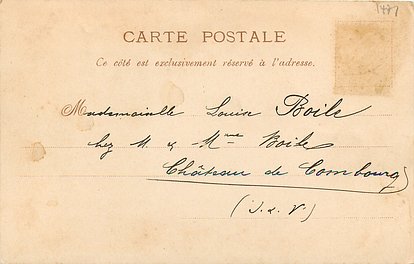 CARTE POSTALE
Ce côté est exclusivement réservé à l'adresse.
Mademoiselle Louise Boile
chez M. & Mme Boile
Château de Combourg
(I. & V.)